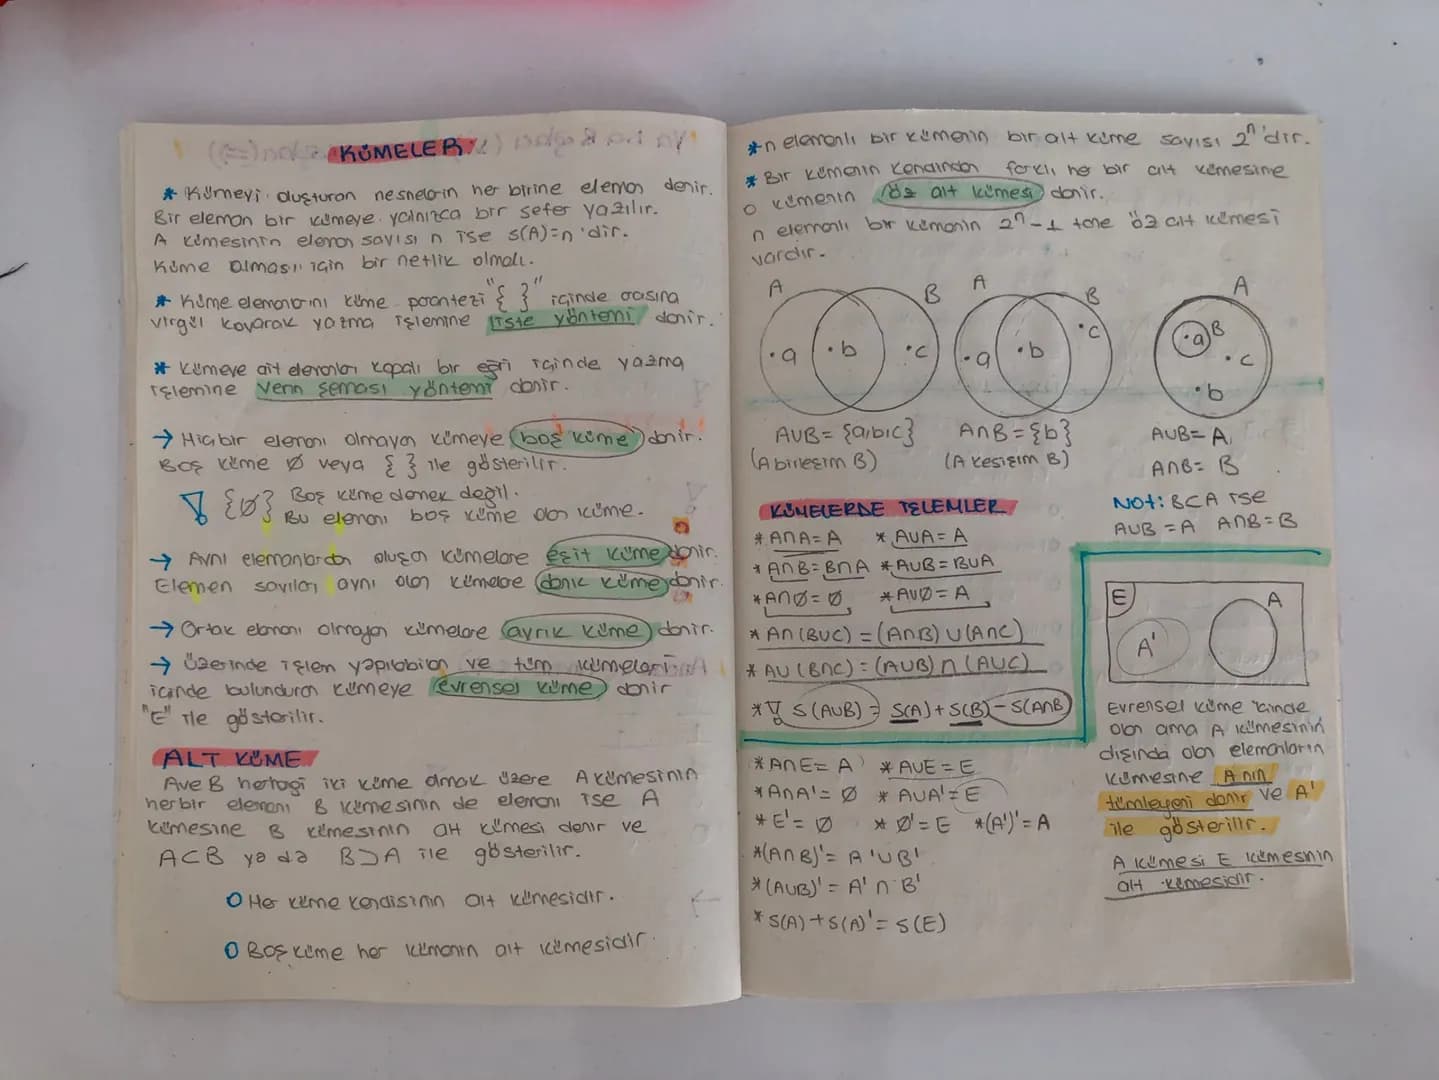 KÜMELER
* Kümeyi oluşturan nesnelerin her birine eleman denir.
Bir eleman bir kümeye yalnızca bir sefer yazılır.
A kümesinin eleman sayısı n ise s(A)=n'dir.
Küme olması için bir netlik olmalı.
* Küme elemanlarını küme parantezi "{ }" içinde arasına
virgül koyarak yazma işlemine liste yöntemi denir.
* Kümeye ait elemanları kapalı bir eğri içinde yazma
işlemine venn şeması yöntemi denir.
→ Hiçbir elemanı olmayan kümeye boş küme denir.
Boş küme Ø veya { } ile gösterilir.
{Ø} Boş küme demek değil.
Bu elemanı boş küme olan küme.
→ Aynı elemanlardan oluşan kümelere eşit küme denir.
Elemen sayıları aynı olan kümelere denk küme denir.
→ Ortak elemanı olmayan kümelere ayrık küme denir.
→ Üzerinde işlem yapılabilen ve tüm kümeleri
içinde bulunduran kümeye evrensel küme denir
"E" ile gösterilir.
ALT KÜME
A ve B herhagi iki küme olmak üzere A kümesinin
her bir elemanı B kümesinin de elemanı ise A
kümesine B kümesinin alt kümesi denir ve
A⊂B ya da B⊃A ile gösterilir.
O Her küme kendisinin alt kümesidir.
O Boş küme her kümenin alt kümesidir.
* n elemanlı bir kümenin bir alt küme sayısı 2ⁿ'dir.
* Bir kümenin kendinden farklı her bir alt kümesine
o kümenin öz alt kümesi denir.
n elemanlı bir kümenin 2ⁿ-1 tane öz alt kümesi
vardır.
A B
•a •b •c
A∪B= {a,b,c}
(A birleşim B)
A B
•a •b •c
A∩B={b}
(A kesişim B)
A
•a B
•c
•b
A∪B= A
A∩B= B
Not: B⊂A ise
A∪B = A A∩B=B
KÜMELERDE İŞLEMLER
* A∩A=A * A∪A= A
* A∩B=B∩A * A∪B=B∪A
* A∩Ø= Ø * A∪Ø= A
* A∩(B∪C) = (A∩B) ∪(A∩C)
* A∪(B∩C) = (A∪B) ∩ (A∪C)
* s(A∪B) = s(A) + s(B) - s(A∩B)
* A∩E= A * A∪E=E
* A∩A'= Ø * A∪A'=E
* E'= Ø * Ø'=E *(A')'=A
*(A∩B)'= A'∪B'
*(A∪B)'= A'∩B'
* s(A)+s(A)'= s(E)
E
A
A'
Evrensel küme içinde
olan ama A kümesinin
dışında olan elemanların
kümesine A nın
tümleyeni denir ve A'
ile gösterilir.
A kümesi E kümesinin
alt kümesidir.